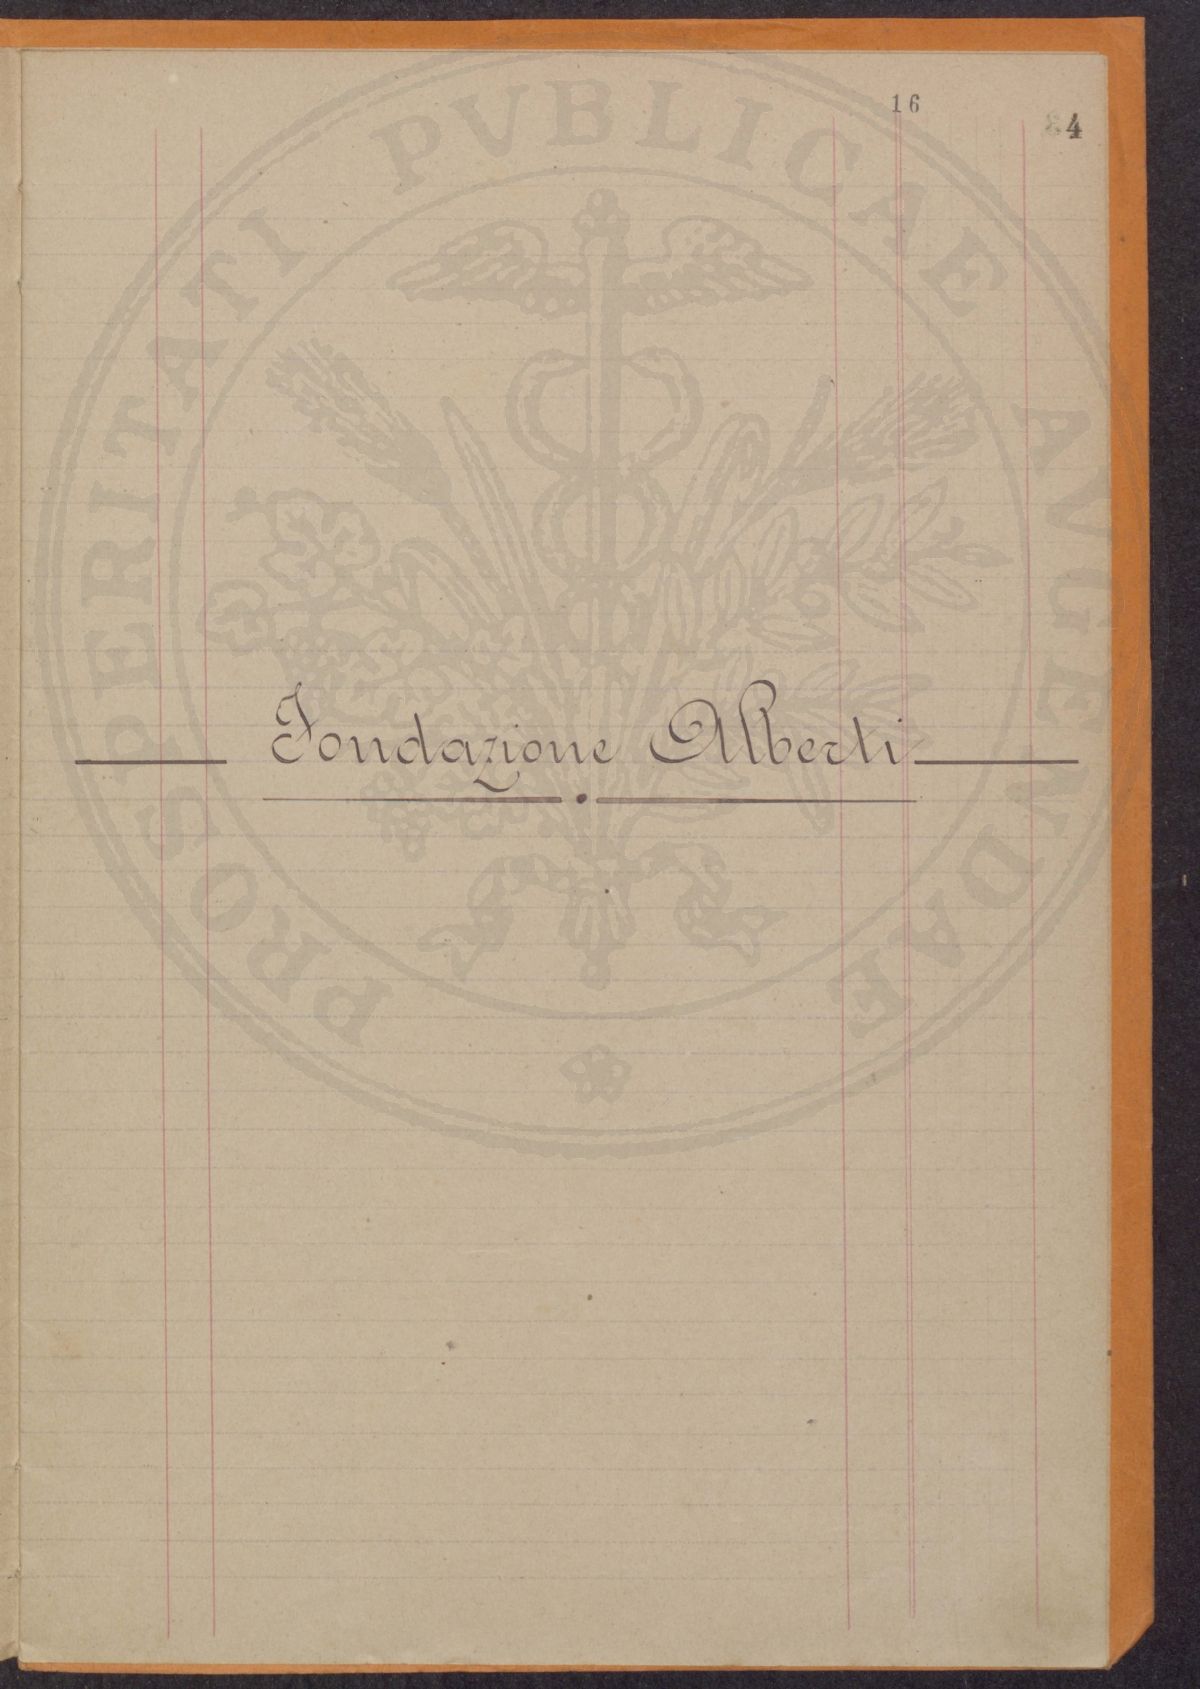 16
84
Fondazione Alberti
PROSPERITATI PVBLICAE AVGENDAE